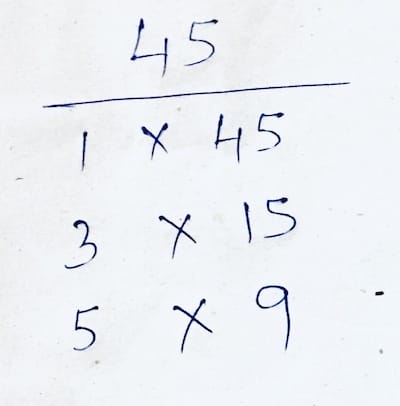 45
1 × 45
3 × 15
5 × 9